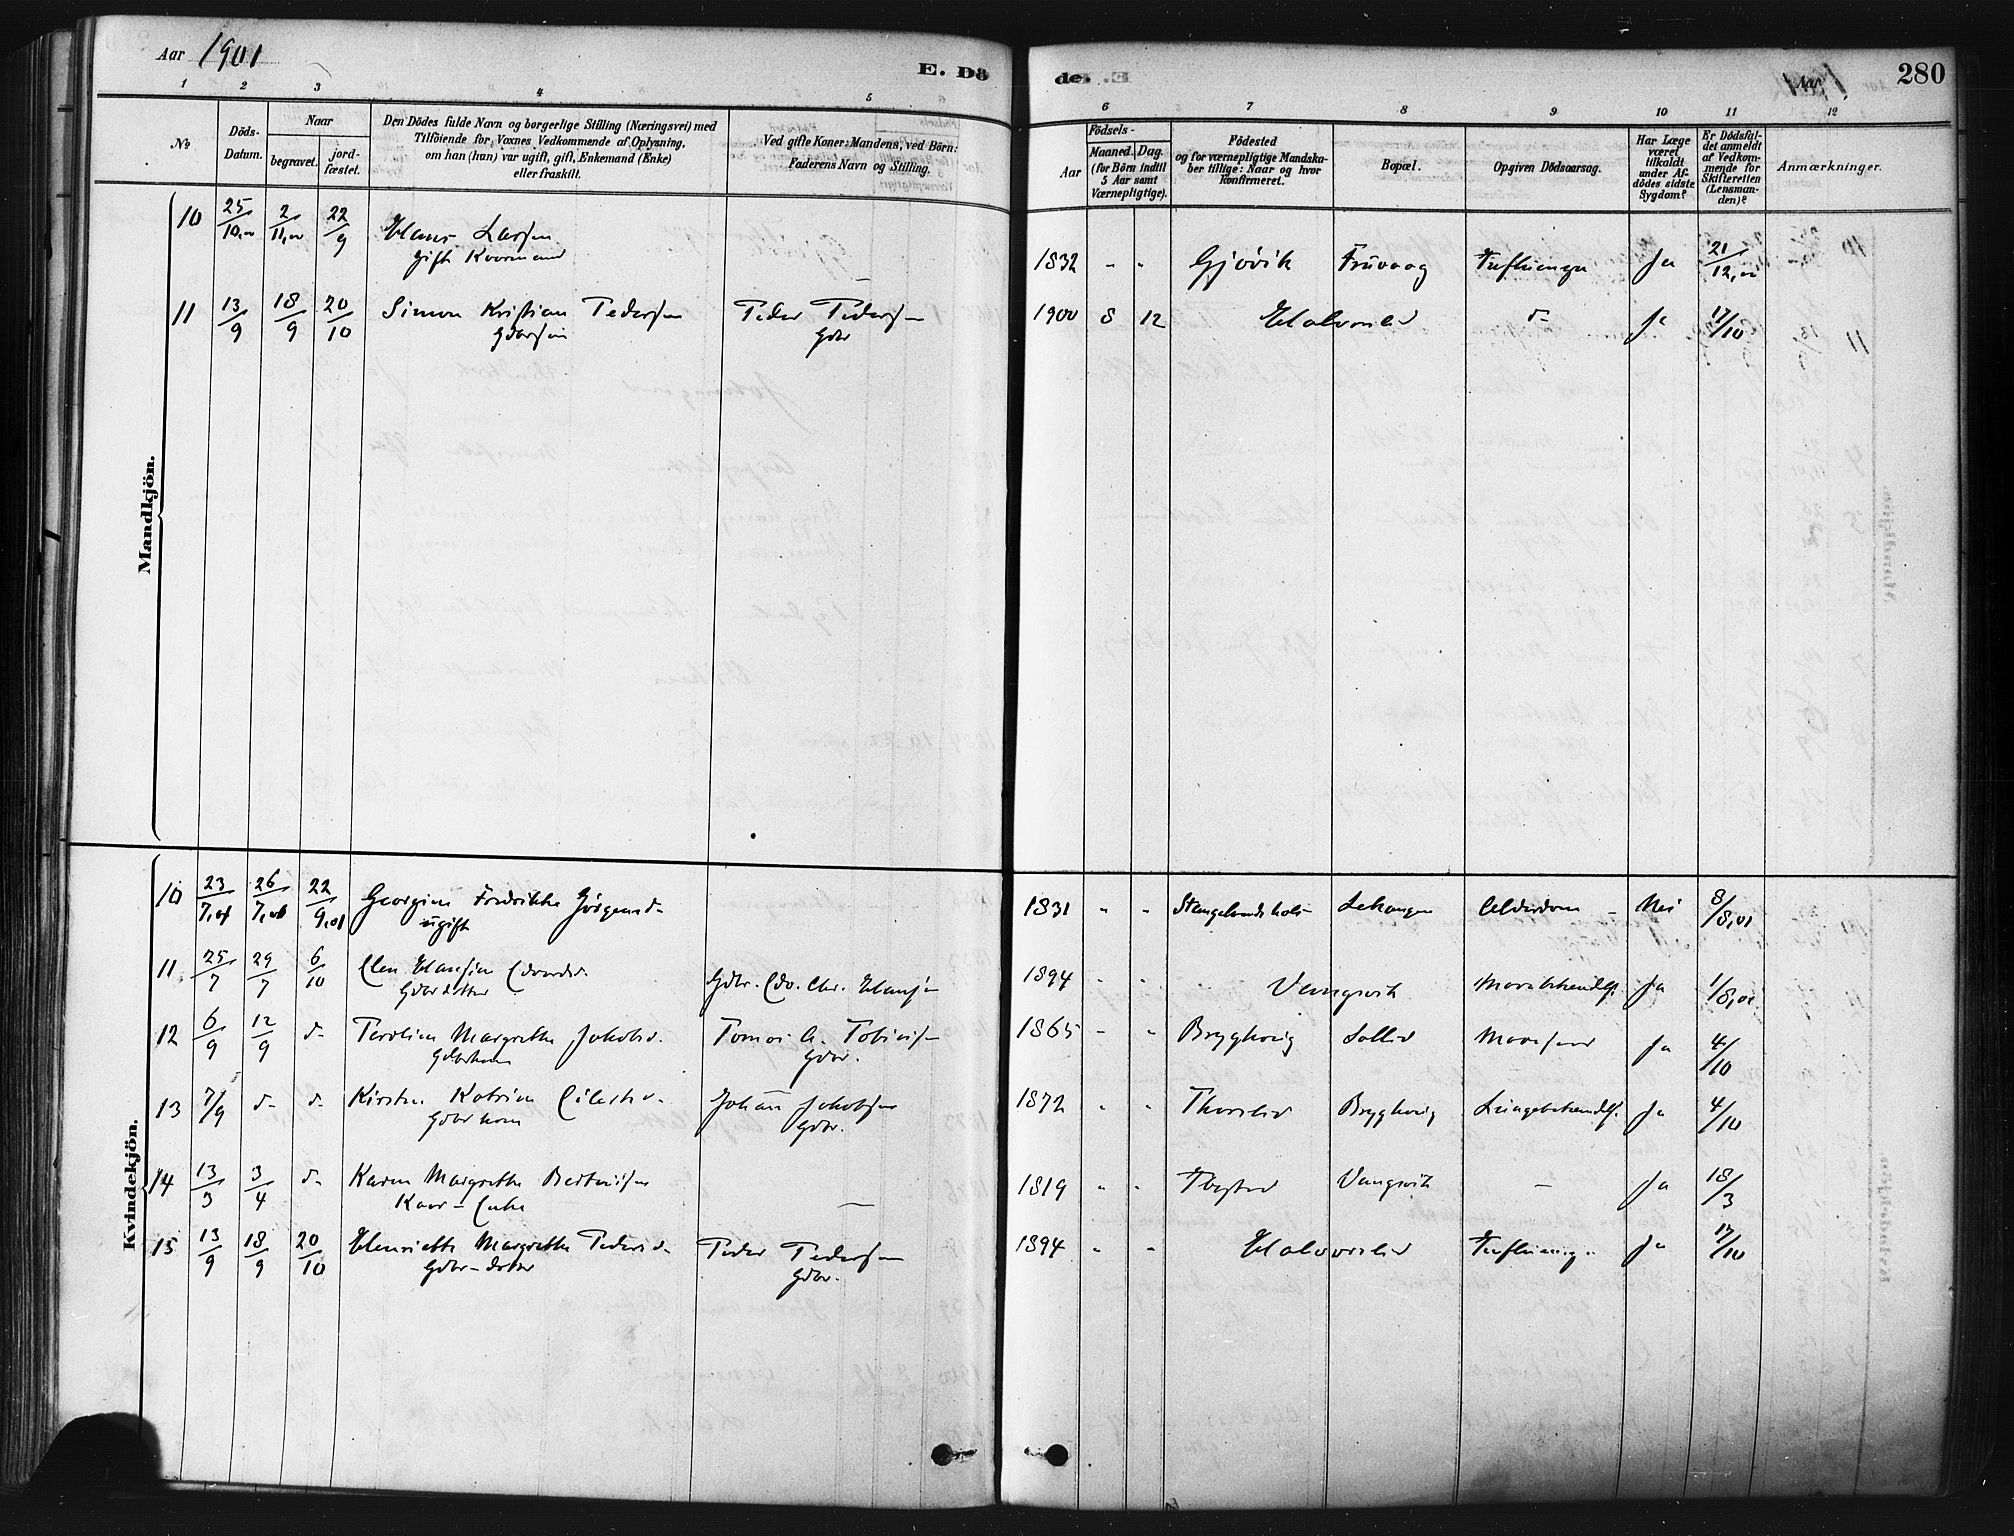 Aar 1901
E. Dö
de.
Aar
280
1 2 3 4 5
6 7 8 9 10 11 12
No
Döds-
Datum.
Naar
begravet.
jord-
fæstet.
Den Dödes fulde Navn og borgerlige Stilling (Næringsvei) med
Tilföiende for Voxnes Vedkommende af Oplysning,
om han (hun) var ugift, gift, Enkemand (Enke)
eller fraskilt.
Ved gifte Koner: Mandens, ved Börn:
Faderens Navn og Stilling.
Födsels-
Aar
Maaned. Dag.
(for Börn indtil
5 Aar samt
Værnepligtige).
Födested
og for værnepligtige Mandska-
ber tillige: Naar og hvor
konfirmeret.
Bopæl.
Opgiven Dödsaarsag.
Har Læge
været
tilkaldt
under Af-
dödes sidste
Sygdom?
Er Dödsfal-
det anmeldt
af Vedkom-
mende for
Skifteretten
(Lensman-
den)?
Anmærkninger.
Mandkjön.
10 25/10,00 2/11,00 22/9 Hans Larsen 1832 " " Gjövik Fruvaag Influenza Ja 21/12,00
gift Kaarmand —
11 13/9 18/9 20/10 Simon Kristian Pedersen Peder Pedersen 1900 8 12 Halvorslid d- Ja 17/10
Gdbrsön Gdbr
Kvindekjön.
10 23/7,01 26/7,01 22/9,01 Georgine Fredrikke Jörgensd. 1831 " " Lekangen Alderdom Nei 8/8,01
ugift
11 25/7 29/7 6/10 Elen Hansine Edvardsd. Gdbr. Edv. Chr. Hansen 1894 " " Vangsvik Ja 1/8,01
Gdbrdatter
12 6/9 12/9 d- Margrethe Jakobsd. Tomas A. Tobiasen 1865 " " Bryghaug Sollid Ja 4/10
Gdbrkone Gdbr.
13 7/9 d- d- Kirsten Katrine Johan Jakobsen 1872 " " Thorslid Bryghaug Lungebetændelse Ja 4/10
Gdbrkone Gdbr.
14 13/3 3/4 d- Karen Margrethe Berteusen — 1819 " " Ibestad Vangsvik — Ja 18/3
Kaar-Enke
15 13/9 18/9 20/10 Henriette Margrethe Pedersd. Peder Pedersen 1894 " " Halvorslid Influenza Ja 17/10
Gdbr-datter Gdbr.